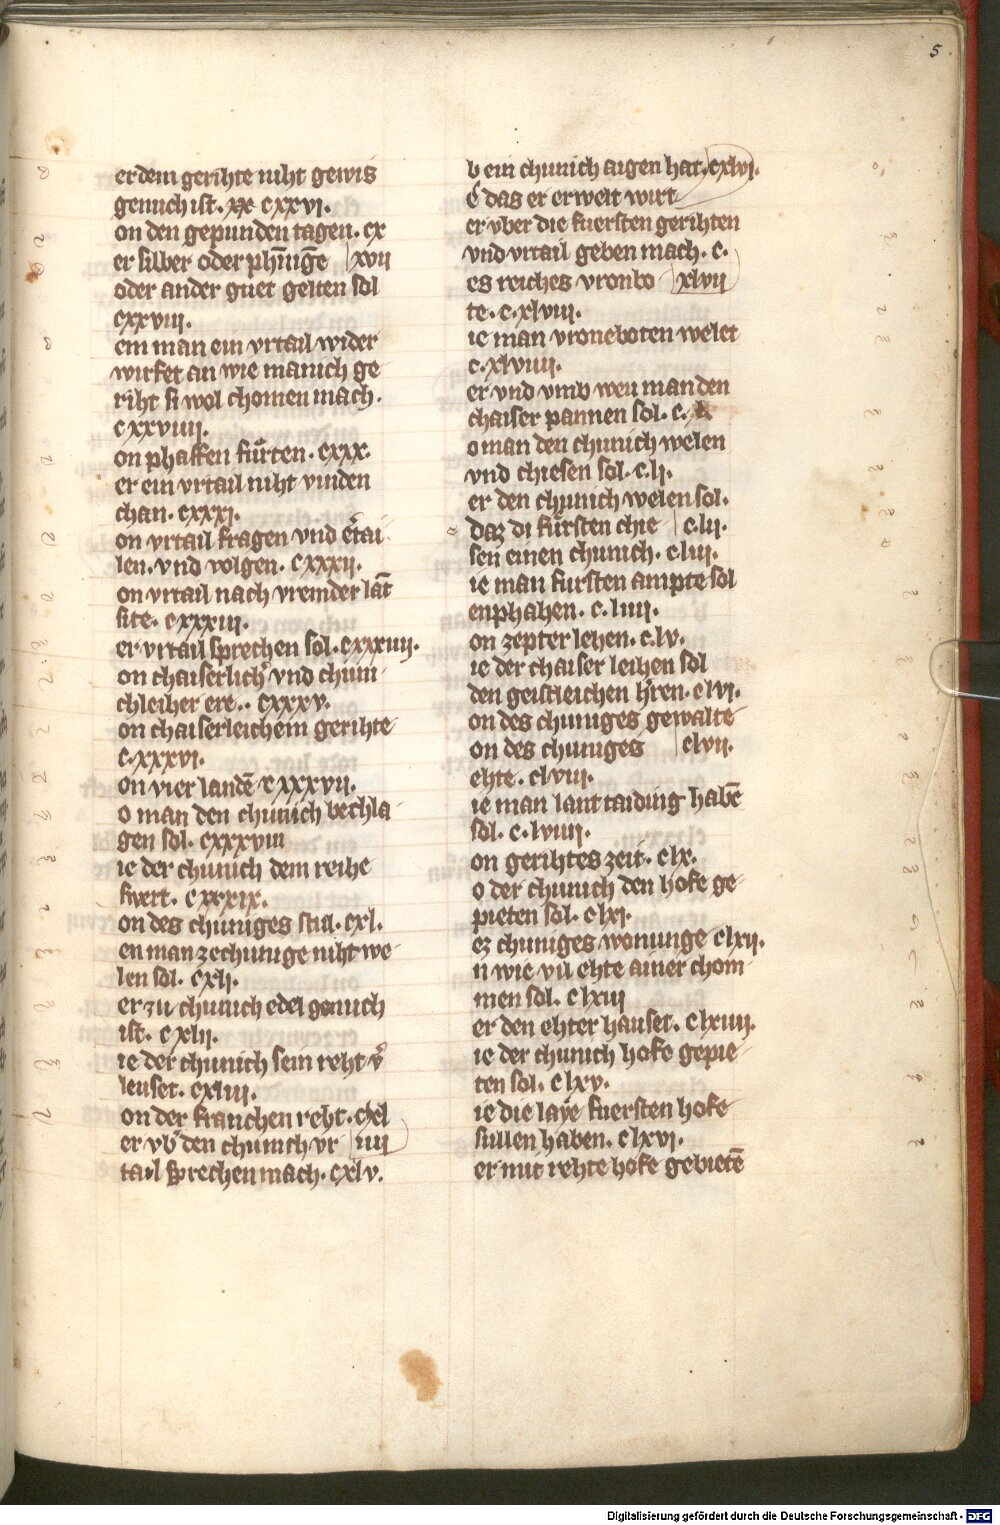 5
er dem gerihte niht gewis
genuch ist. xx cxxvi.
on den gepunden tagen. cx
er silber oder phēnīge xvii
oder ander guet gelten sol
cxxviii.
em man ein vrtail wider
wirfet an wie manich ge
riht si wol chomen mach.
cxxviiii.
on phaffen fürten. cxxx.
er ein vrtail niht vinden
chan. cxxxi.
on vrtail fragen vnd ertai
len. vnd volgen. cxxxii.
on vrtail nach vremder lāt
site. cxxxiii.
er vrtail sprechen sol. cxxxiiii.
on chaiserlich vnd chuni
chleiher ere.. cxxxv.
on chaiserleichem gerihte
c.xxxvi.
on vier landē cxxxvii.
o man den chunich bechla
gen sol. cxxxviii
ie der chunich dem reihe
swert. cxxxix.
on des chuniges stul. cxl.
en man zechunige niht we
len sol. cxli.
er zu chunich edel genuch
ist. cxlii.
ie der chunich sein reht v
leuset. cxliii.
on der franchen reht. cxl
er vb den chunich vr iiii
tail sprechen mach. cxlv.
b ein chunich aigen hat. cxlvi.
e das er erwelt wirt
er vber die fuersten gerihten
vnd vrtail geben mach. c.
es reiches vronbo xlvii
te. c.xlviii.
ie man vroneboten welet
c.xlviiii.
er vnd vmb weu man den
chaiser pannen sol. c.
o man den chunich welen
vnd chiesen sol. c.li.
er den chunich welen sol.
daz di fürsten chie c.lii.
sen einen chunich. cliii.
ie man fursten ampte sol
enphahen. c.liiii.
on zepter lehen. c.lv.
ie der chaiser leihen sol
den geistleichen hren. clvi.
on des chuniges gewalte
on des chuniges clvii.
ehte. clviii.
ie man lanttaiding habē
sol. c.lviiii.
on gerihtes zeit. clx.
o der chunich den hofe ge
pieten sol. clxi.
ez chuniges wonunge clxii.
n wie vil ehte ainer chom
men sol. clxiii
er den ehter hauset. clxiiii.
ie der chunich hofe gepie
ten sol. clxv.
ie die laye fuersten hofe
sullen haben. clxvi.
er mit rehte hofe gebietē
Digitalisierung gefördert durch die Deutsche Forschungsgemeinschaft - DFG